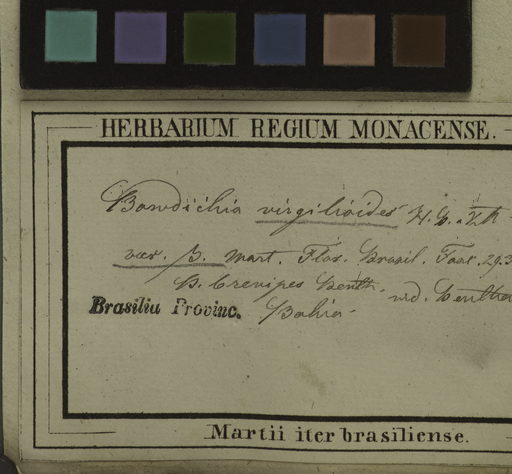 HERBARIUM REGIUM MONACENSE.
Bowdichia virgilioides H.B. &. Kth
var. β. Mart. Flor. Brasil. Fasc. 29.3
B. brevipes Benth. vid. Bentham
Brasilia Provinc. Bahia.
Martii iter brasiliense.